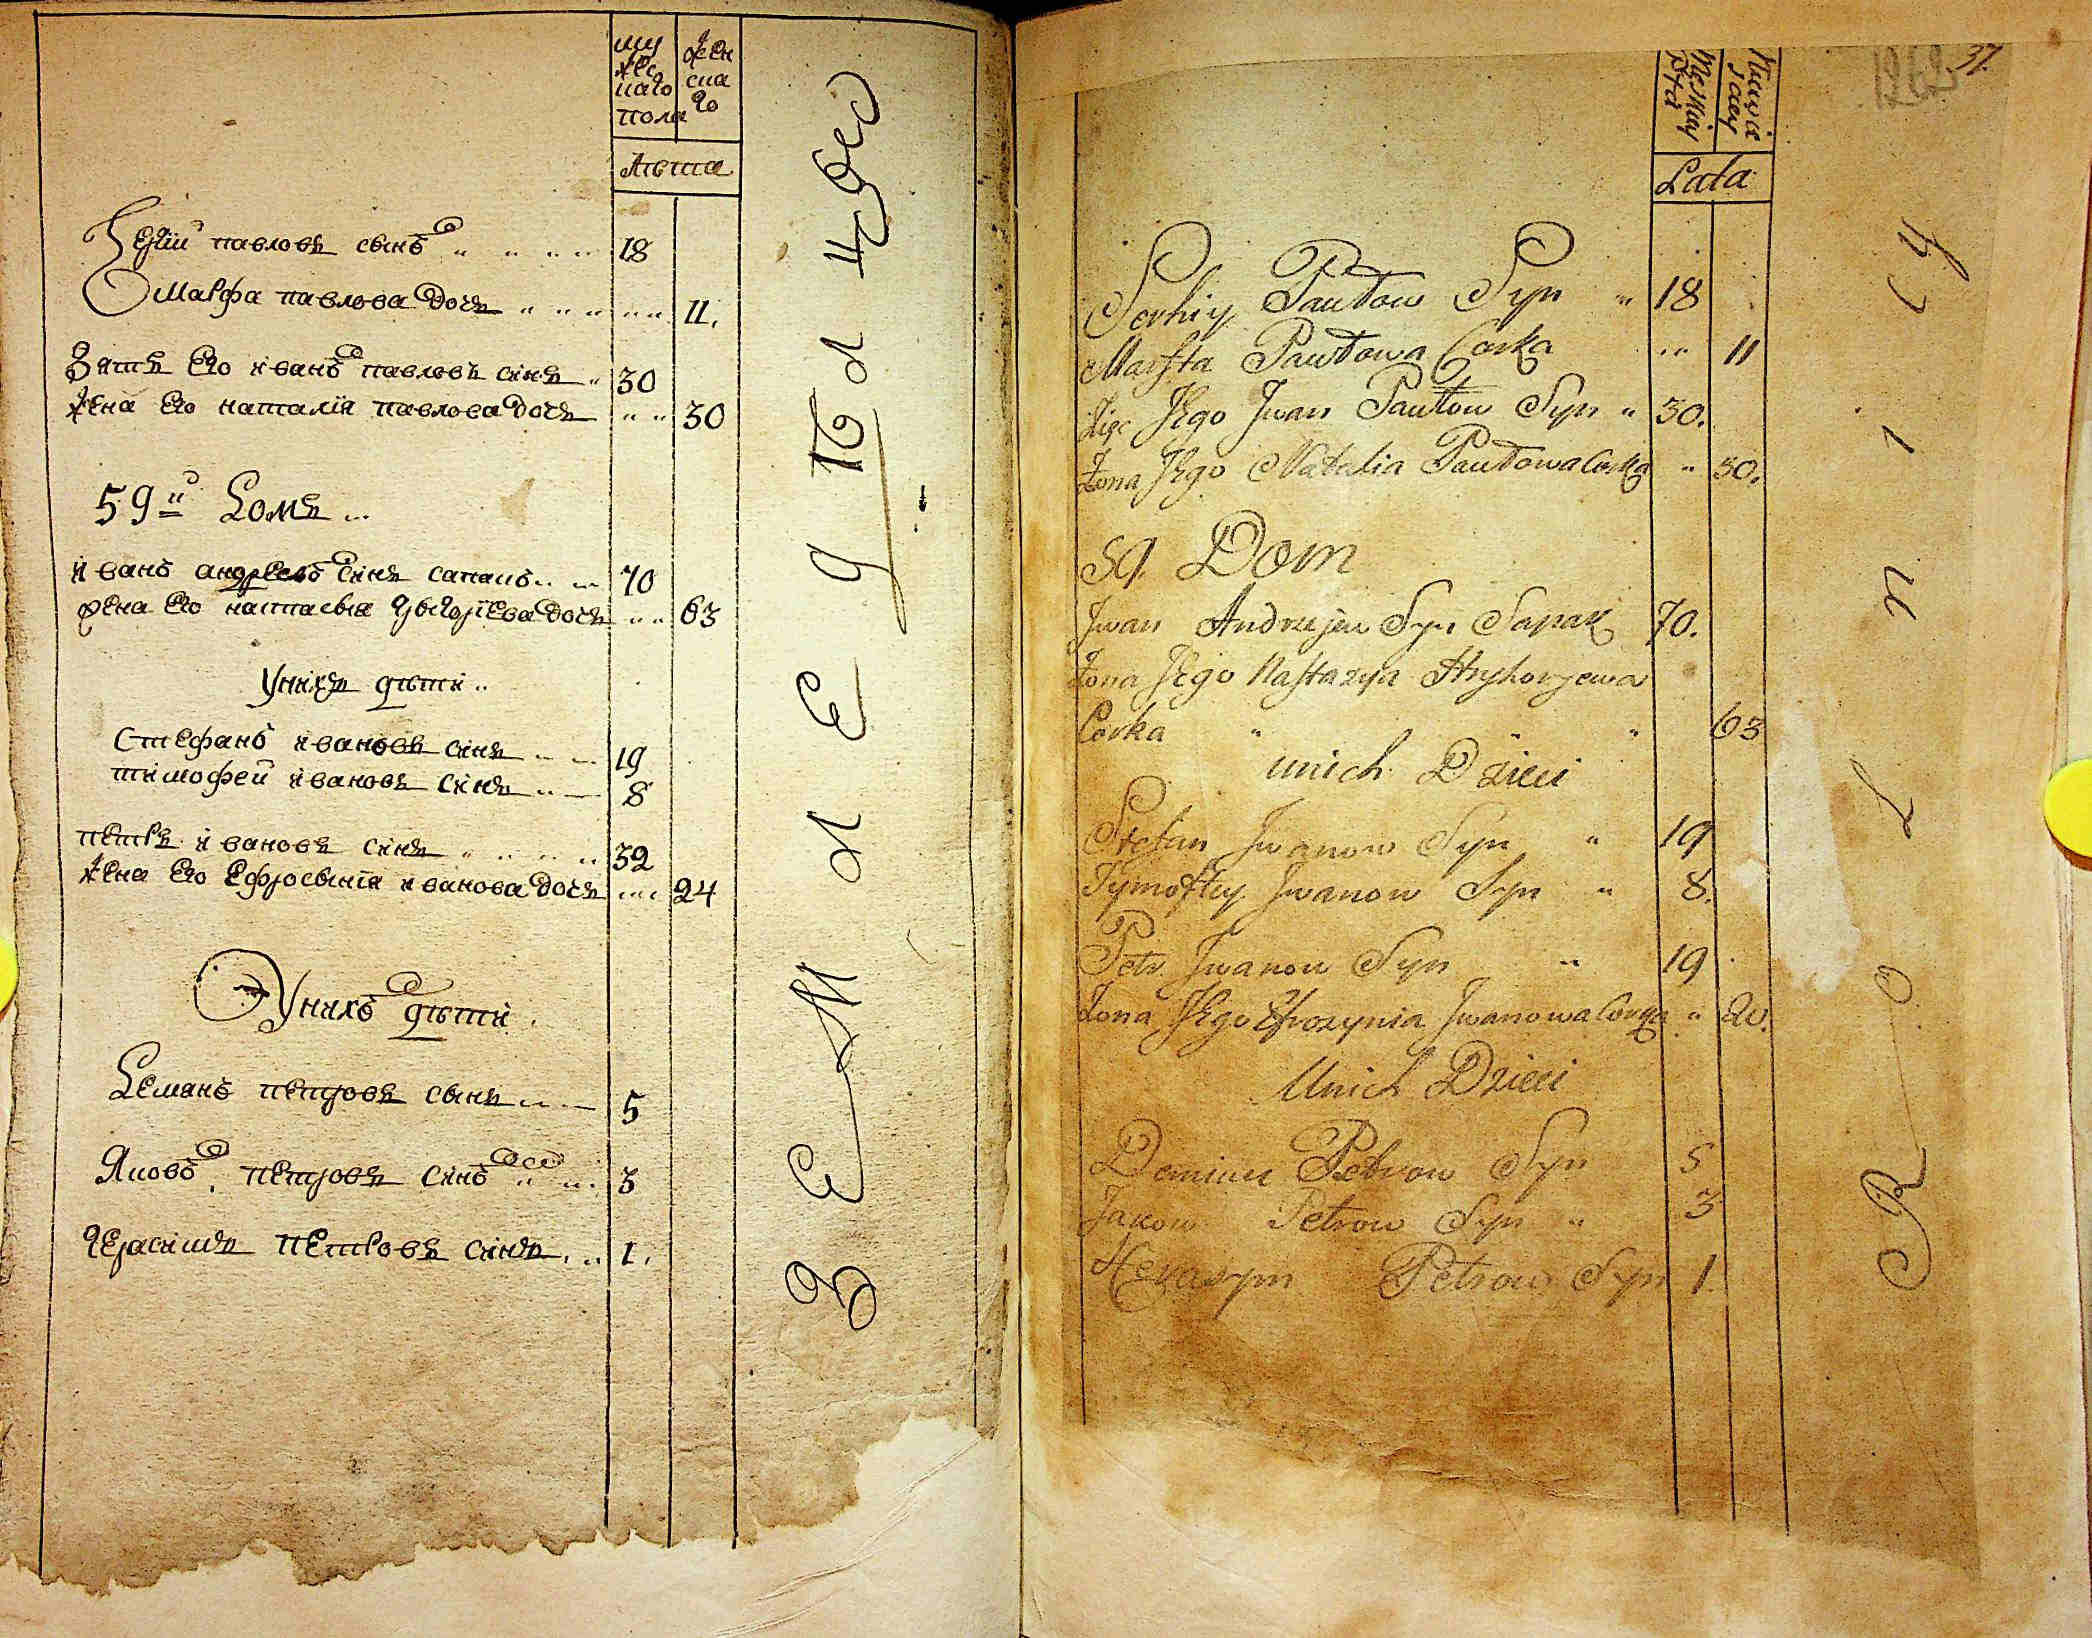 му
жес
каго
пола
жен
ска
го
Лѣта
Сергій павловъ сынъ 18
Марфа павлова дочь 11.
Зять его иванъ павловъ синъ 30
жена его наталія павлова дочь 30
59й Домъ
иванъ андреевъ синъ сапакъ 70
жена его настасья григорїева дочь 63
Унихъ дѣти
Стефанъ ивановъ синъ 19
тимофей ивановъ синъ 8
петръ ивановъ синъ 32
жена его Ефросынїя иванова дочь 24
Унихъ дѣти
Деманъ петровъ сынъ 5
Яковъ петровъ синъ 3
Герасимъ петровъ синъ 1.
37.
Męskiey
Płci
Lata
Serhiy Pawłow Syn 18
Marfta Pawłowa Corka 11
Zięc Jego Jwan Pawłow Syn 30.
Zona Jego Natalia Pawłowa Corka 30.
59. Dom
Jwan Andrujew Syn Sapak 70.
Zona Jego Nastazya Hryhoryewa
Corka 63
unich Dzieci
Stefan Jwanow Syn 19
Tymoftey Jwanow Syn 8.
Petr Jwanow Syn 19
Zona Jego Efrozynia Jwanowa Corka 20.
Unich Dzieci
Demian Petrow Syn 5
Jakow Petrow Syn 3
Herasym Petrow Syn 1